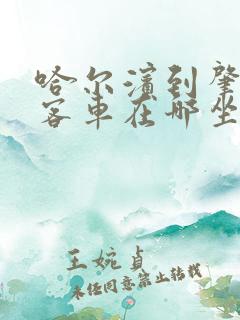 哈尔滨到肇
客车在哪坐
王婉贞
未经同意禁止转载